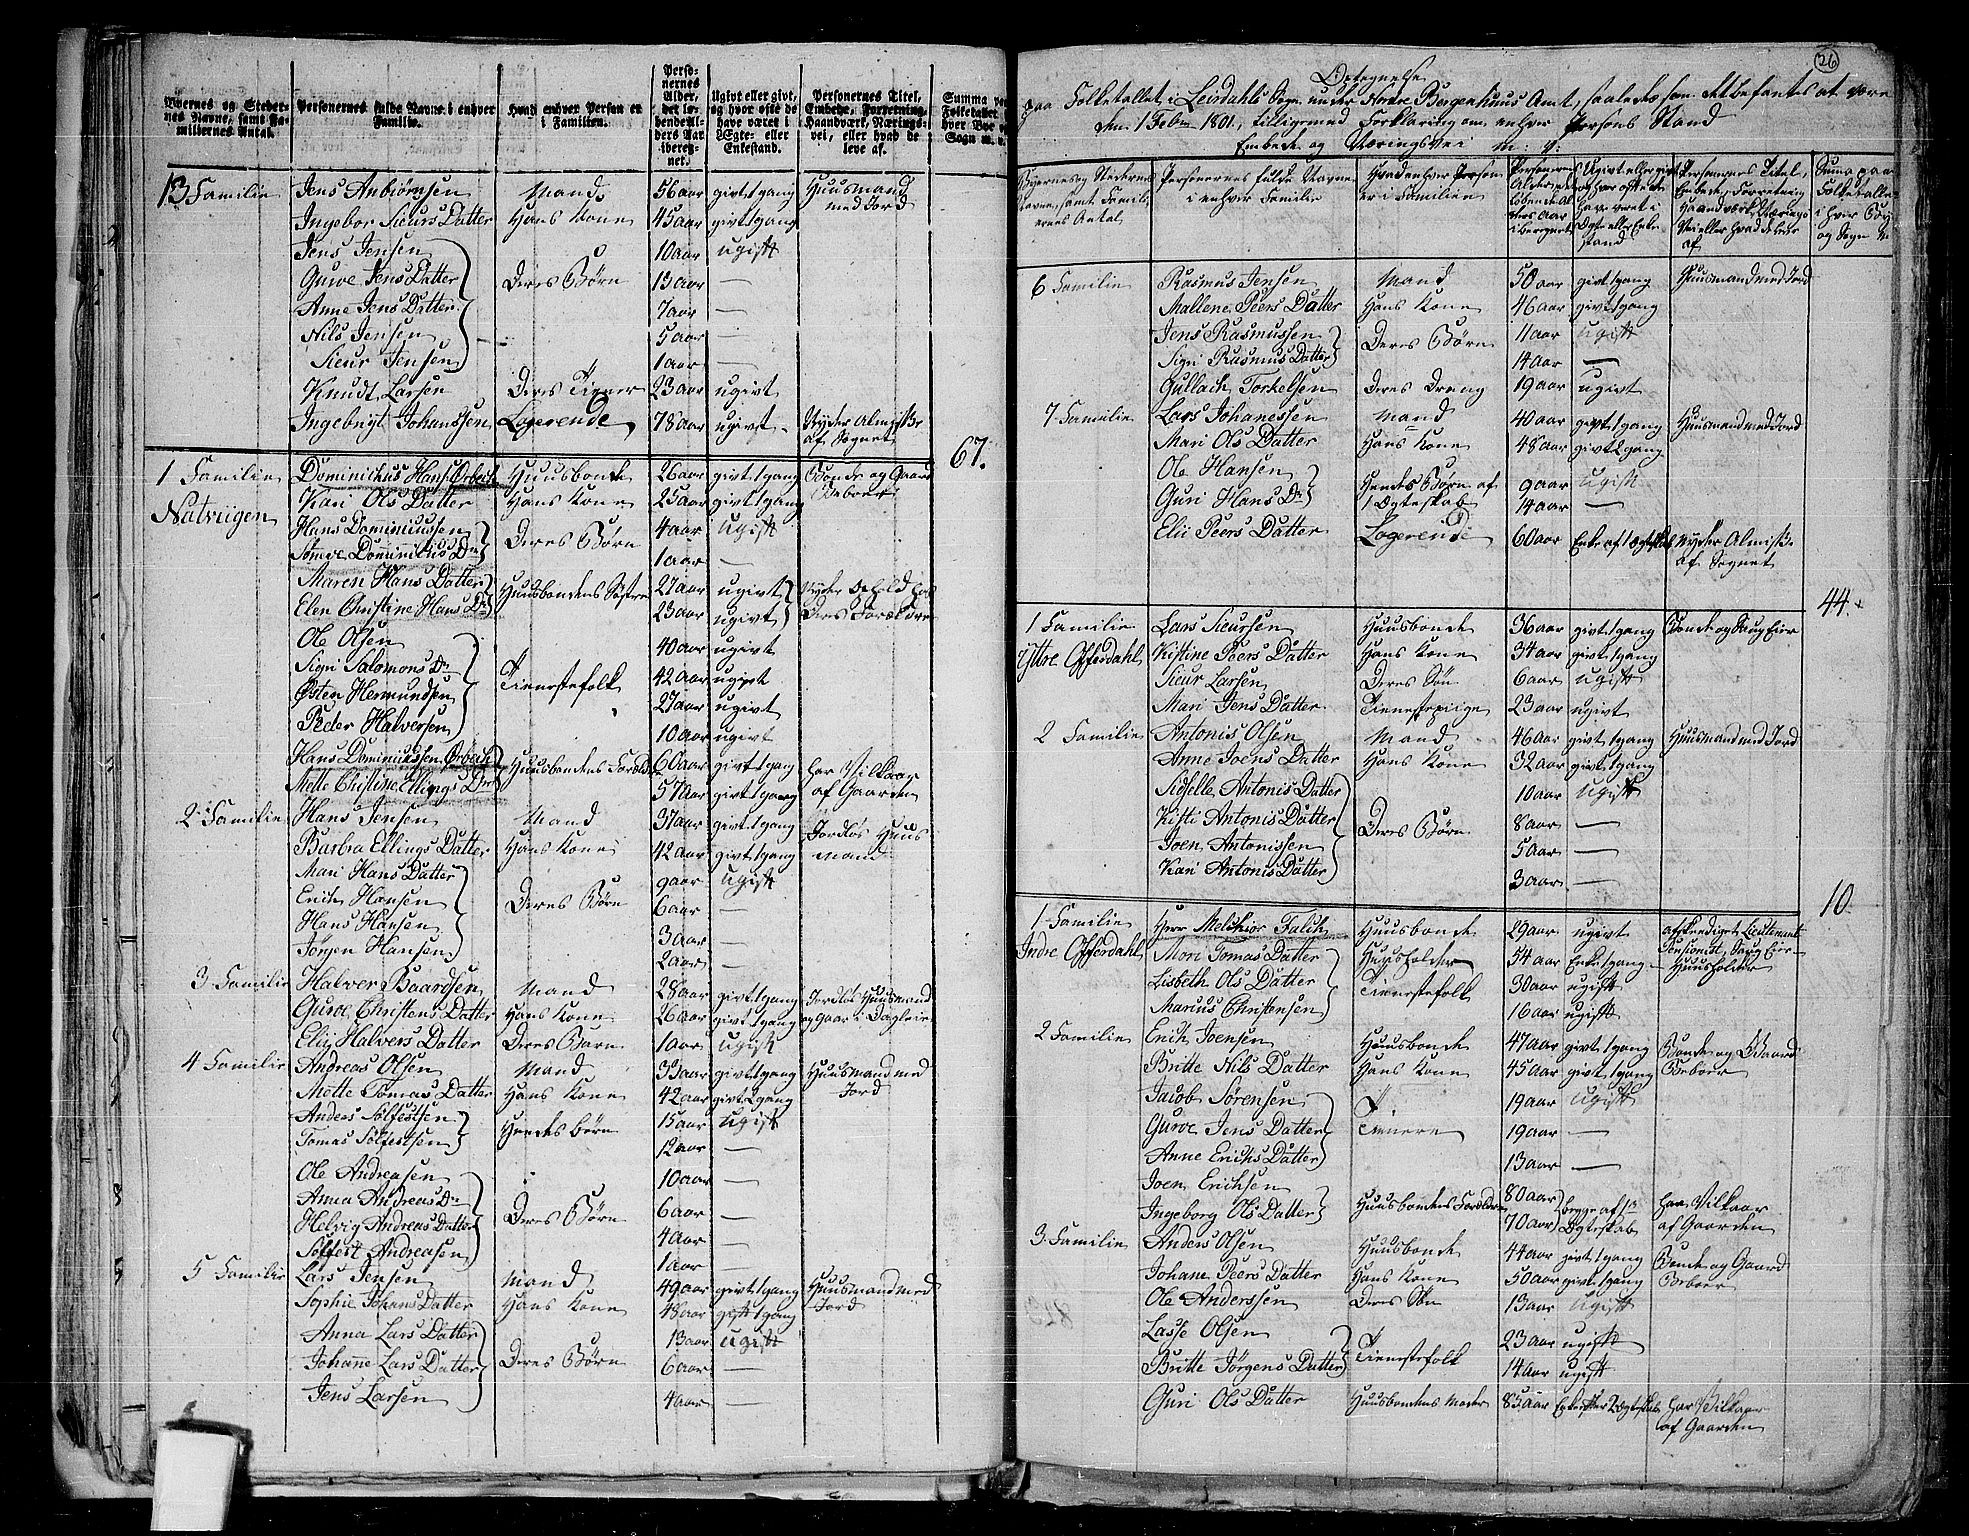 Byernes og Stedernes Navne, samt Familiernes Antal.
Personernes fulde Navne i enhver Familie.
Hvad enhver Person er i Familien.
Personernes Alder, det løbende Alders Aar iberegnet.
Ugivt eller givt, og hvor ofte de have været i Ægte- eller Enkestand.
Personernes Titel, Embede, Forretning, Haandværk, Næringsvei, eller hvad de leve af.
13 Familie Jens Anbiørnsen Mand 56 aar givt 1 gang Huusmand med Jord
Ingebor Sieurs Datter Hans Kone 45 aar givt 1 gang
Jens Jensen 10 aar ugift
Gurve Jens Datter Deres Børn 13 aar —
Anne Jens Datter 7 aar —
Nils Jensen 5 aar —
Sieur Jensen 1 aar —
Knudt Larsen Deres Tiener 23 aar ugivt
Ingebrigt Johanssen Logerende 78 aar ugivt Nyder Almisse af Sognet
67.
1 Familie Dominichus Hans. Ørbech Huusbonde 26 aar givt 1 gang Bonde og Gaard Beboer
Natviigen Kari Ols Datter Hans Kone 25 aar givt 1 gang
Hans Dominicussen Deres Børn 4 aar ugift
Dominichus Dr 1 aar —
Maren Hans Datter Huusbondens Søstre 27 aar ugivt Nyder Ophold hos Deres Forældre
Elen Christine Hans Dr 23 aar ugivt
Ole Olsen 40 aar ugivt
Sigri Salomons Dr Tienestefolk 42 aar ugivt
Østen Hermundsen 27 aar ugivt
Peder Halversen 10 aar ugivt
Hans Dominicussen Ørbech Huusbondens Forældre 60 aar givt 1 gang har Vilkaar af Gaarden
Mette Christine Ellings Dr 57 aar givt 1 gang
2 Familie Hans Jensen Mand 37 aar givt 1 gang Jordløs Huusmand
Barbra Ellings Datter Hans Kone 42 aar givt 1 gang
Mari Hans Datter 9 aar ugift
Erich Hansen Deres Børn 6 aar —
Hans Hansen 3 aar —
Jørgen Hansen 2 aar —
3 Familie Halver Baardsen Mand 28 aar givt 1 gang Jordløs Huusmand
Gurve Christens Datter Hans Kone 26 aar givt 1 gang og gaar i Dagleie
Elii Halvers Datter Deres Barn 1 aar ugift
4 Familie Andreas Olsen Mand 33 aar givt 1 gang Huusmand med Jord
Mette Tomas Datter Hans Kone 42 aar givt 2 gang
Anders Sølfestsen Hendes børn 15 aar ugift
Tomas Sølfestsen 12 aar —
Ole Andreasen 10 aar —
Anna Andreas Dr Deres Børn 6 aar —
Helvig Andreas Datter 4 aar —
Sølfest Andreasen 1 aar —
5 Familie Lars Jensen Mand 49 aar givt 1 gang Huusmand med Jord
Sophie Johans Datter Hans Kone 48 aar gift 1 gang
Anna Lars Datter 13 aar ugift
Johanne Lars Datter Deres Børn 6 aar —
Jens Larsen 4 aar —
26
Optegnelse
paa Folketallet i Leirdahls Sogn under Nordre Bergenhuus Amt, saaledes som det befantes at være
den 1 Febr. 1801, tilligemed Forklaring om enhver Persons Stand
Embede og Næringsvei m: v:
Byernes og Stedernes Navne, samt Familiernes Antal
Personernes fulde Navne i enhver Familie
Hvad enhver Person er i Familien
Personernes Alder det løbende Alders Aar iberegnet
Ugivt eller givt og hvor ofte de har været i Ægte eller Enkestand
Personernes Titel, Embede, Forretning, Haandværk, Næringsvei eller hvad de lever af
Summa paa Folketallet i hver Bøy og Sogn
6 Familie Rasmus Jensen Mand 50 aar givt 1 gang Huusmand med Jord
Mallene Peers Datter Hans Kone 46 aar givt 1 gang
Jens Rasmussen Deres Børn 11 aar ugift
Sigri Rasmus Datter 14 aar —
Gullach Torkelsen Deres Dreng 19 aar ugivt
7 Familie Lars Johanessen Mand 40 aar givt 1 gang Huusmand med Jord
Mari Ols Datter Hans Kone 48 aar givt 2 gang
Ole Hansen Hendes Børn af 9 aar ugift
Guri Hans Dr 1 Ægteskab 14 aar —
Elii Peers Datter Logerende 60 aar Enke af 1 Ægteskab Nyder Almisse af Sognet
44
1 Familie Lars Sieursen Huusbonde 36 aar givt 1 gang Bonde og Jaug Eier
Yttre Offerdahl Kistine Peers Datter Hans Kone 34 aar givt 1 gang
Sieur Larsen Deres Søn 6 aar ugift
Mari Jens Datter Tienestepiige 23 aar ugivt
2 Familie Antonis Olsen Mand 46 aar givt 1 gang Huusmand med Jord
Anne Joens Datter Hans Kone 32 aar givt 1 gang
Sidselle Antonis Datter 10 aar ugift
Kisti Antonis Datter Deres Børn 8 aar —
Joen Antonissen 5 aar —
Kari Antonis Datter 3 aar —
10
1 Familie Herr Melchior Falch Huusbonde 29 aar ugivt afskendiget Lieutenant Pensionist, Jaug Eier
Indre Offerdahl Mari Tomas Datter Huusholder 54 aar Enke 1 gang Huusholder
Lisbeth Ols Datter Tienestefolk 30 aar ugift
Marius Christensen 16 aar ugift
2 Familie Erich Joensen Huusbonde 47 aar givt 1 gang Bonde og Gaard Beboer
Britte Nils Datter Hans Kone 45 aar givt 1 gang
Jacob Sørensen 19 aar ugift
Gurve Jens Datter Tienere 19 aar —
Anne Erichs Datter 13 aar —
Joen Erichsen Huusbondens Forældre 80 aar begge af 1te Ægteskab har Vilkaar af Gaarden
Ingeborg Ols Datter 70 aar
3 Familie Anders Olsen Huusbonde 44 aar givt 1 gang Bonde og Gaard Beboer
Johane Peers Datter Hans Kone 50 aar givt 1 gang
Ole Anderssen Deres Søn 13 aar ugift
Lasse Olsen Tienestefolk 23 aar ugift
Britte Jørgens Datter 14 aar ugift
Guri Ols Datter Huusbondens Moder 85 aar Enke efter 2 Ægteskab har Vilkaar af Gaarden